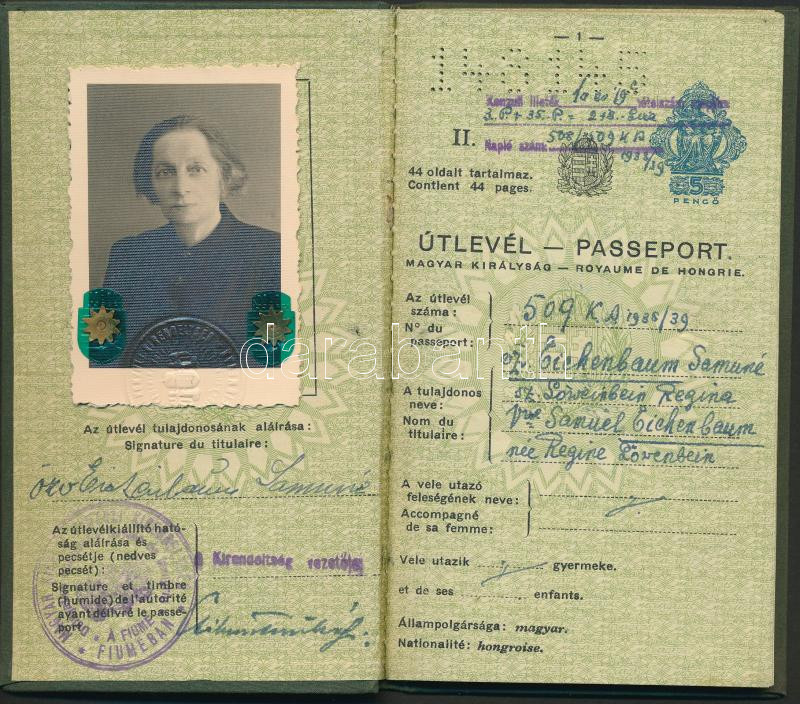 Az útlevél tulajdonosának aláírása:
Signature du titulaire:
özv Samuné
Az útlevélkiállító ható-
ság aláírása és
pecsétje (nedves
pecsét):
Signature et timbre
(humide) de l'autorité
ayant délivré le passe-
port
A Kirendeltség vezetője
A FIUME
FIUMEBAN
— 1 —
Konzuli illeték
3.P+35.P=
Napló szám 508/509 KA
1938/39
II.
44 oldalt tartalmaz.
Contient 44 pages.
5
PENGŐ
ÚTLEVÉL — PASSEPORT.
MAGYAR KIRÁLYSÁG — ROYAUME DE HONGRIE.
Az útlevél
száma:
N° du
passeport:
509 KA 1938/39
A tulajdonos
neve:
Nom du
titulaire:
öz. Eichenbaum Samuné
sz. Löweinbein Regina
vve Samuel Eichenbaum
née Regine Lövenbein
A vele utazó
feleségének neve:
Accompagné
de sa femme:
Vele utazik gyermeke.
et de ses enfants.
Állampolgársága: magyar.
Nationalité: hongroise.
darabanth.com